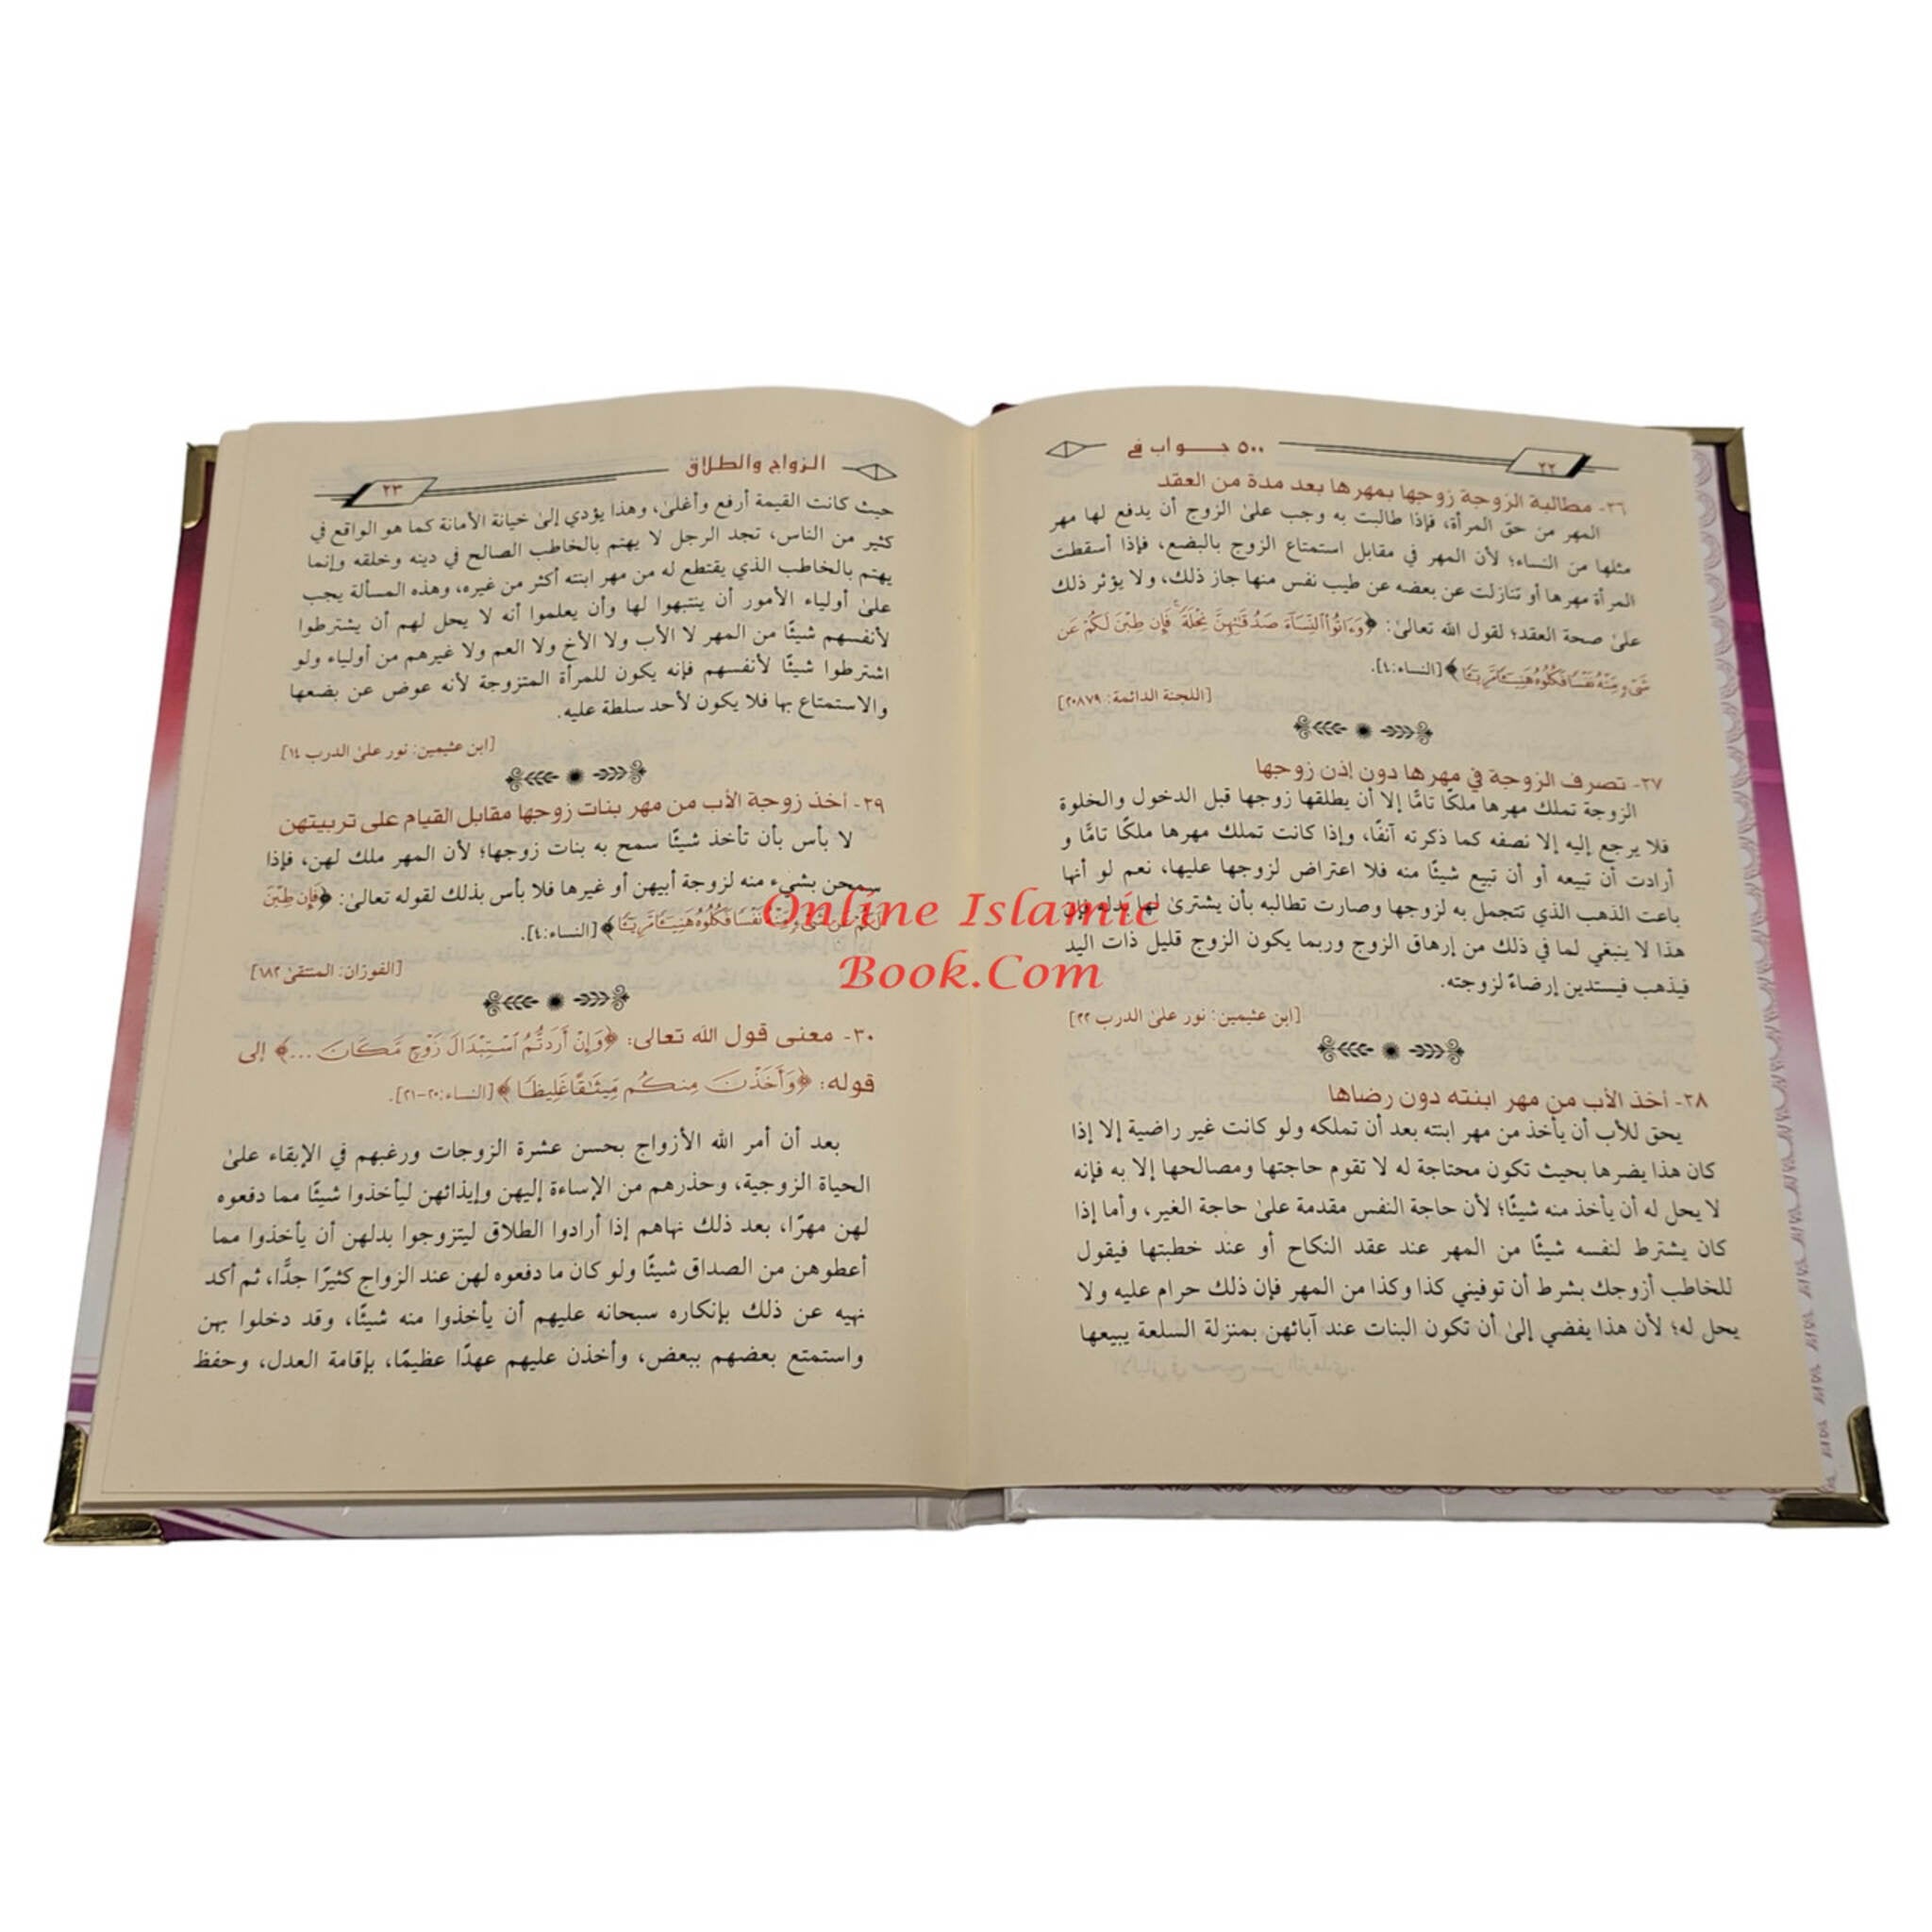 ٥٠٠ جـــواب في
٢٢
٢٦- مطالبة الزوجة زوجها بمهرها بعد مدة من العقد
المهر من حق المرأة، فإذا طالبت به وجب علىٰ الزوج أن يدفع لها مهر
مثلها من النساء؛ لأن المهر في مقابل استمتاع الزوج بالبضع، فإذا أسقطت
المرأة مهرها أو تنازلت عن بعضه عن طيب نفس منها جاز ذلك، ولا يؤثر ذلك
علىٰ صحة العقد؛ لقول الله تعالىٰ: ﴿وَءَاتُوا۟ ٱلنِّسَآءَ صَدُقَٰتِهِنَّ نِحْلَةً ۚ فَإِن طِبْنَ لَكُمْ عَن
شَىْءٍ مِّنْهُ نَفْسًا فَكُلُوهُ هَنِيٓـًٔا مَّرِيٓـًٔا﴾ [النساء:٤].
[اللجنة الدائمة: ٢٠٨٧٩]
٢٧- تصرف الزوجة في مهرها دون إذن زوجها
الزوجة تملك مهرها ملكًا تامًّا إلا أن يطلقها زوجها قبل الدخول والخلوة
فلا يرجع إليه إلا نصفه كما ذكرته آنفًا، وإذا كانت تملك مهرها ملكًا تامًّا و
أرادت أن تبيعه أو أن تبيع شيئًا منه فلا اعتراض لزوجها عليها، نعم لو أنها
باعت الذهب الذي تتجمل به لزوجها وصارت تطالبه بأن يشترىٰ لها بدله فإن
هذا لا ينبغي لما في ذلك من إرهاق الزوج وربما يكون الزوج قليل ذات اليد
فيذهب فيستدين إرضاءً لزوجته.
[ابن عثيمين: نور علىٰ الدرب ٢٢]
٢٨- أخذ الأب من مهر ابنته دون رضاها
يحق للأب أن يأخذ من مهر ابنته بعد أن تملكه ولو كانت غير راضية إلا إذا
كان هذا يضرها بحيث تكون محتاجة له لا تقوم حاجتها ومصالحها إلا به فإنه
لا يحل له أن يأخذ منه شيئًا؛ لأن حاجة النفس مقدمة علىٰ حاجة الغير، وأما إذا
كان يشترط لنفسه شيئًا من المهر عند عقد النكاح أو عند خطبتها فيقول
للخاطب أزوجك بشرط أن توفيني كذا وكذا من المهر فإن ذلك حرام عليه ولا
يحل له؛ لأن هذا يفضي إلىٰ أن تكون البنات عند آبائهن بمنزلة السلعة يبيعها
الزواج والطلاق
٢٣
حيث كانت القيمة أرفع وأغلىٰ، وهذا يؤدي إلىٰ خيانة الأمانة كما هو الواقع في
كثير من الناس، تجد الرجل لا يهتم بالخاطب الصالح في دينه وخلقه وإنما
يهتم بالخاطب الذي يقتطع له من مهر ابنته أكثر من غيره، وهذه المسألة يجب
علىٰ أولياء الأمور أن ينتبهوا لها وأن يعلموا أنه لا يحل لهم أن يشترطوا
لأنفسهم شيئًا من المهر لا الأب ولا الأخ ولا العم ولا غيرهم من أولياء ولو
اشترطوا شيئًا لأنفسهم فإنه يكون للمرأة المتزوجة لأنه عوض عن بضعها
والاستمتاع بها فلا يكون لأحد سلطة عليه.
[ابن عثيمين: نور علىٰ الدرب ١٤]
٢٩- أخذ زوجة الأب من مهر بنات زوجها مقابل القيام على تربيتهن
لا بأس بأن تأخذ شيئًا سمح به بنات زوجها؛ لأن المهر ملك لهن، فإذا
سمحن بشيء منه لزوجة أبيهن أو غيرها فلا بأس بذلك لقوله تعالىٰ: ﴿فَإِن طِبْنَ
لَكُمْ عَن شَىْءٍ مِّنْهُ نَفْسًا فَكُلُوهُ هَنِيٓـًٔا مَّرِيٓـًٔا﴾ [النساء:٤].
[الفوزان: المنتقىٰ ١٨٢]
٣٠- معنى قول الله تعالى: ﴿وَإِنْ أَرَدتُّمُ ٱسْتِبْدَالَ زَوْجٍ مَّكَانَ ...﴾ إلى
قوله: ﴿وَأَخَذْنَ مِنكُم مِّيثَٰقًا غَلِيظًا﴾ [النساء:٢٠-٢١].
بعد أن أمر الله الأزواج بحسن عشرة الزوجات ورغبهم في الإبقاء علىٰ
الحياة الزوجية، وحذرهم من الإساءة إليهن وإيذائهن ليأخذوا شيئًا مما دفعوه
لهن مهرًا، بعد ذلك نهاهم إذا أرادوا الطلاق ليتزوجوا بدلهن أن يأخذوا مما
أعطوهن من الصداق شيئًا ولو كان ما دفعوه لهن عند الزواج كثيرًا جدًّا، ثم أكد
نهيه عن ذلك بإنكاره سبحانه عليهم أن يأخذوا منه شيئًا، وقد دخلوا بهن
واستمتع بعضهم ببعض، وأخذن عليهم عهدًا عظيمًا، بإقامة العدل، وحفظ
Online Islamic
Book.Com